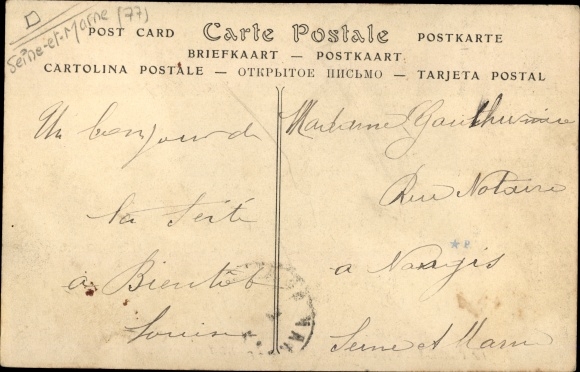 D
Seine-et-Marne (77)
Carte Postale
POST CARD
POSTKARTE
BRIEFKAART — POSTKAART
CARTOLINA POSTALE — ОТКРЫТОЕ ПИСЬМО — TARJETA POSTAL
Un bonjour de
la
à Bientôt
Louise
Madame
Rue Notaire
a Nangis
Seine et Marne